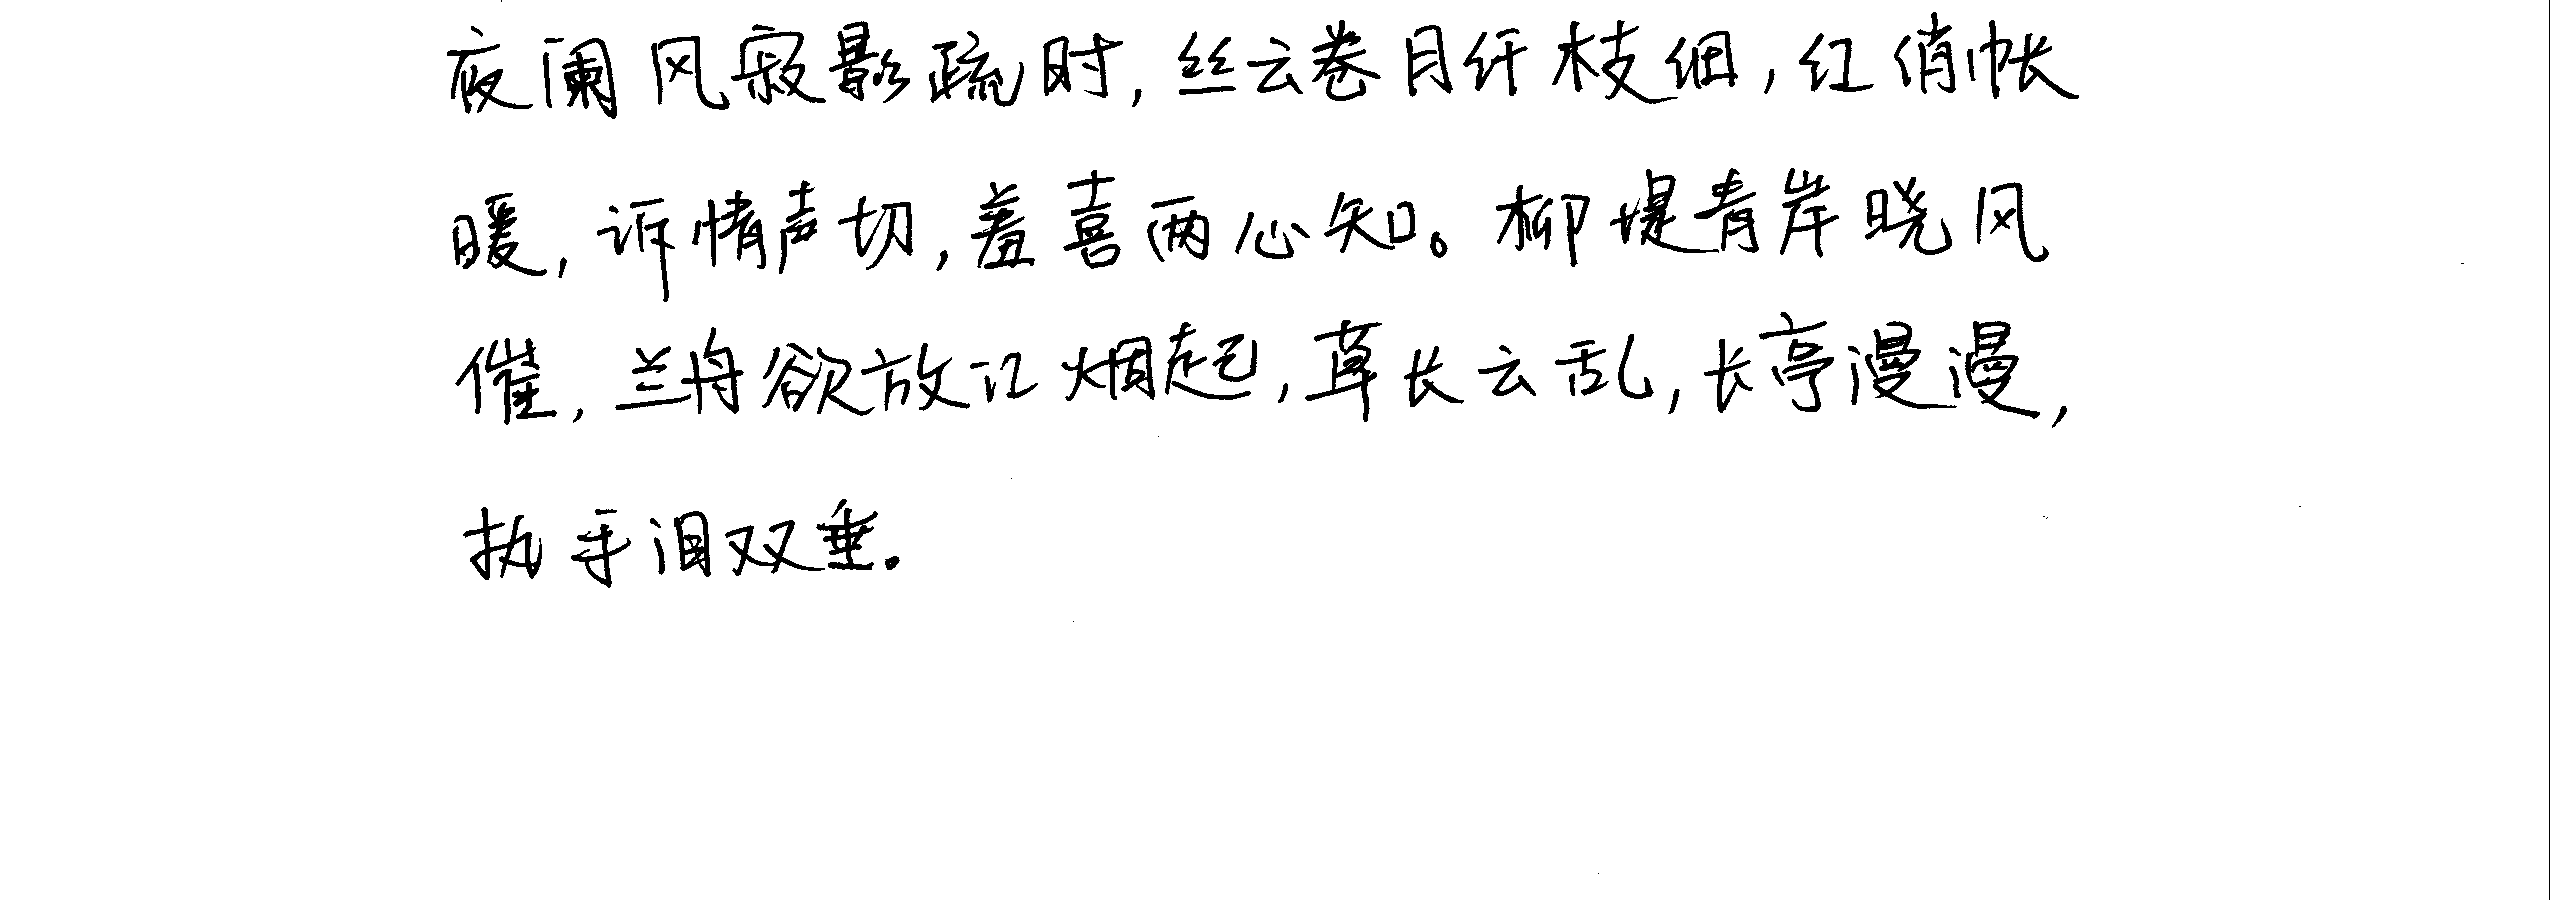 夜阑风寂影疏时,丝云卷月纤枝细,红绡帐
暖,诉情声切,羞喜两心知。柳堤青岸晓风
催,兰舟欲放江烟起,草长云乱,长亭漫漫,
执手泪双垂。